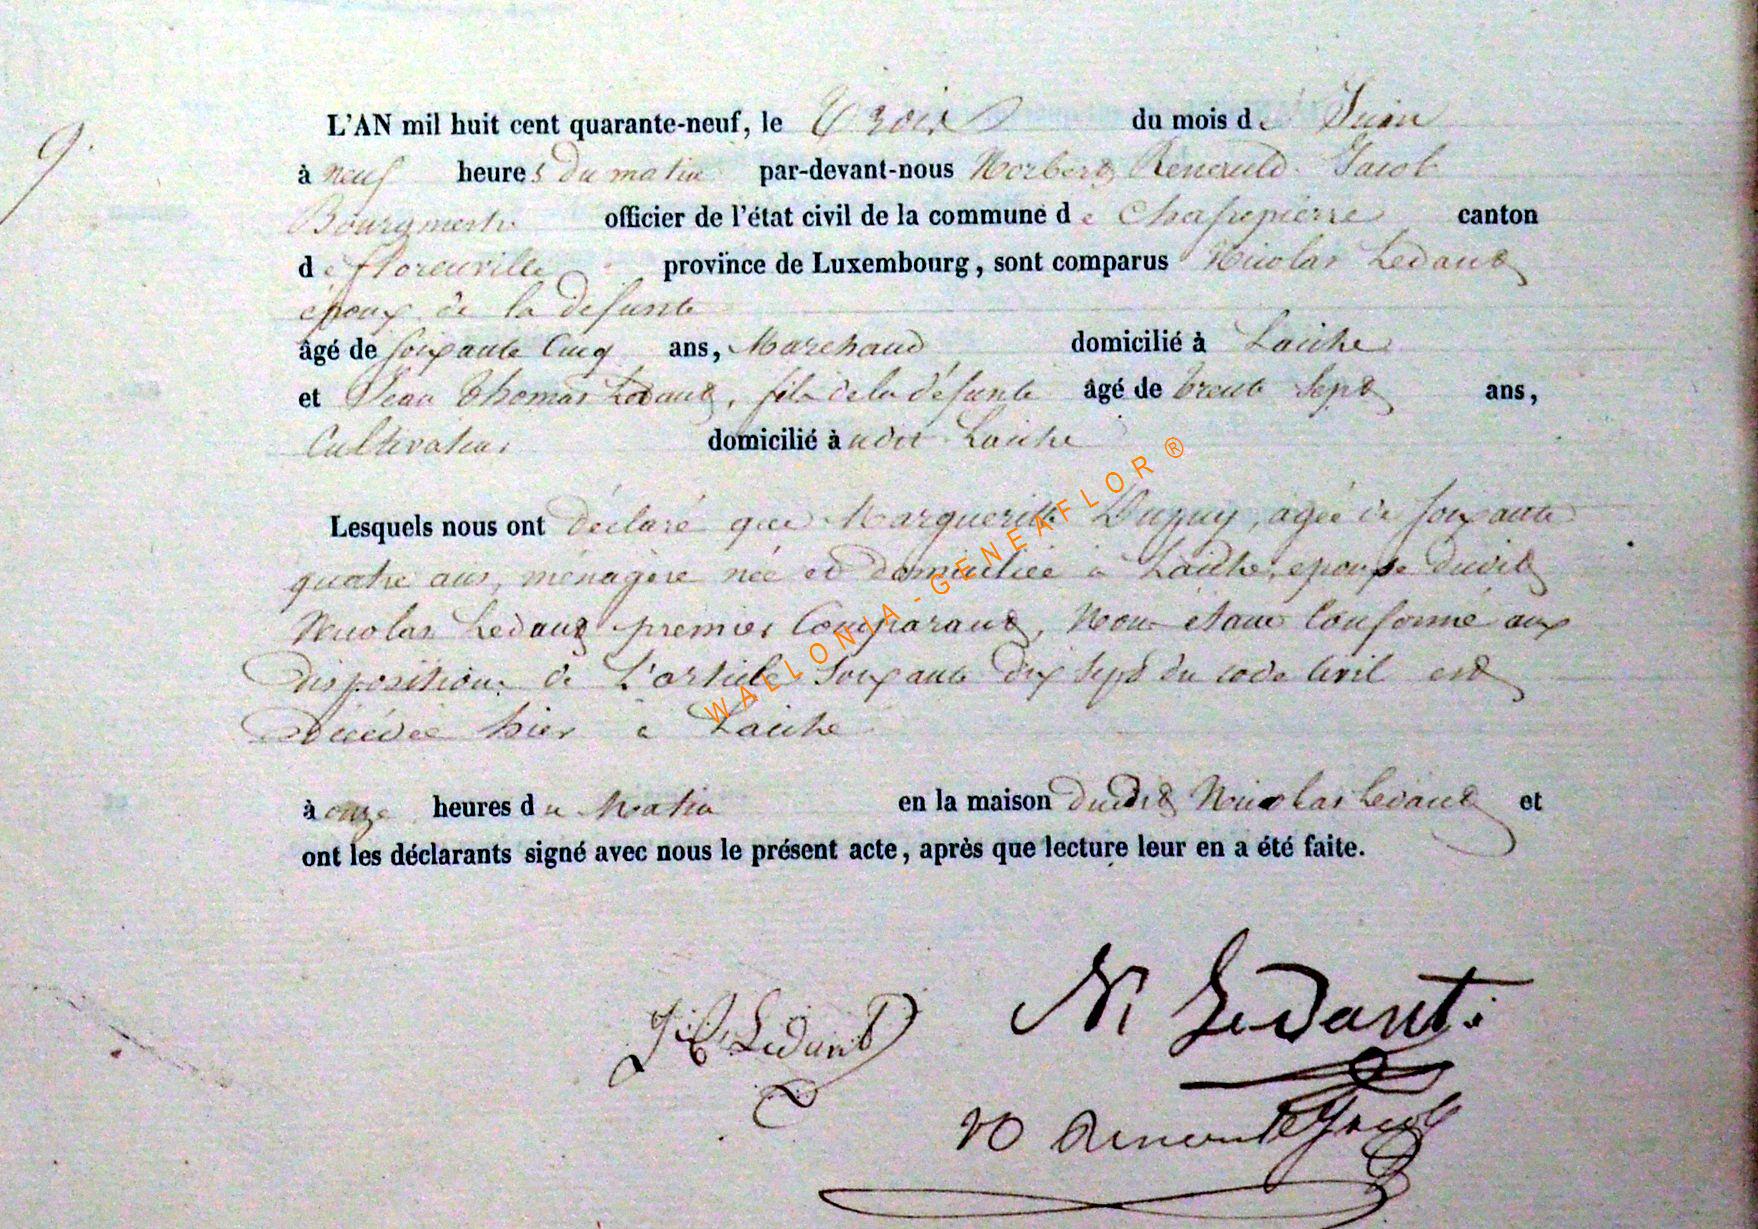 9.
L'AN mil huit cent quarante-neuf, le Trois du mois de Juin
à neuf heures du matin par-devant-nous Norbert Renauld Jacob
Bourgmestre officier de l'état civil de la commune de Chassepierre canton
de florenville province de Luxembourg, sont comparus Nicolas Ledant
époux de la défunte
âgé de soixante Cinq ans, Marchand domicilié à Laiche
et Jean Thomas Ledant, fils de la défunte âgé de trente Sept ans,
Cultivateur domicilié à udit Laiche
Lesquels nous ont déclaré que Marguerite Dupuy, agée de soixante
quatre ans, ménagère née et domiciliée à Laiche, epouse dudit
Nicolas Ledant premier Comparant, Nous étant Conformé aux
disposition de L'article soixante dix sept du code Civil est
décédée hier à Laiche
à onze heures du Matin en la maison dudit Nicolas Ledant et
ont les déclarants signé avec nous le présent acte, après que lecture leur en a été faite.
WALLONIA-GENEAFLOR ®
J T Ledant N Ledant.
Renauld Jacob